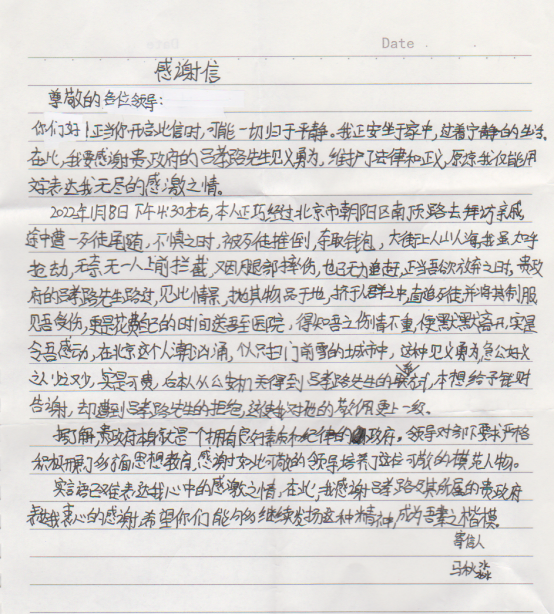 Date
感谢信
尊敬的各位领导：
你们好！正当你开启此信时，可能一切归于平静。我正安坐于家中，过着宁静的生活。
在此，我要感谢贵政府的吕孝路先生见义勇为，维护了法律和正义，原谅我仅能用
文字表达我无尽的感激之情。
2022年1月8日下午4:30左右，本人正巧经过北京市朝阳区南顶路去拜访亲戚
途中遭一歹徒尾随，不慎之时，被歹徒推倒，夺取钱包，大街上人山人海，我虽大呼
抢劫，无奈无一人上前拦截，又因腿部摔伤，也已无力追赶，正当吾欲放弃之时，贵政
府的吕孝路先生路过，见此情景，抛其物品于地，挤于人群之中，直追歹徒并将其制服
见吾受伤，更是花费自己的时间送吾至医院，得知吾之伤情不重，便默默离开，实是
令吾感动，在北京这个人潮汹涌，仅只扫门前雪的大城市中，这种见义勇为，急公好义
之人少又少，实是可贵，在本人从公安机关得到吕孝路先生的联系方式，本想给予钱财
告谢，却遭到吕孝路先生的拒绝，这使我对他的敬佩更上一级。
据了解，贵政府本身就是一个拥有良好素质和纪律的政府。领导对部下要求严格
积极开展了多方面思想教育，感谢如此可敬的领导培养了这位可敬的模范人物。
实言语已难表达我心中的感激之情，在此，我感谢吕孝路及其所属的贵政府
表我衷心的感谢，希望你们能够继续发扬这种精神，成为吾辈之楷模。
寄信人
马秋淼